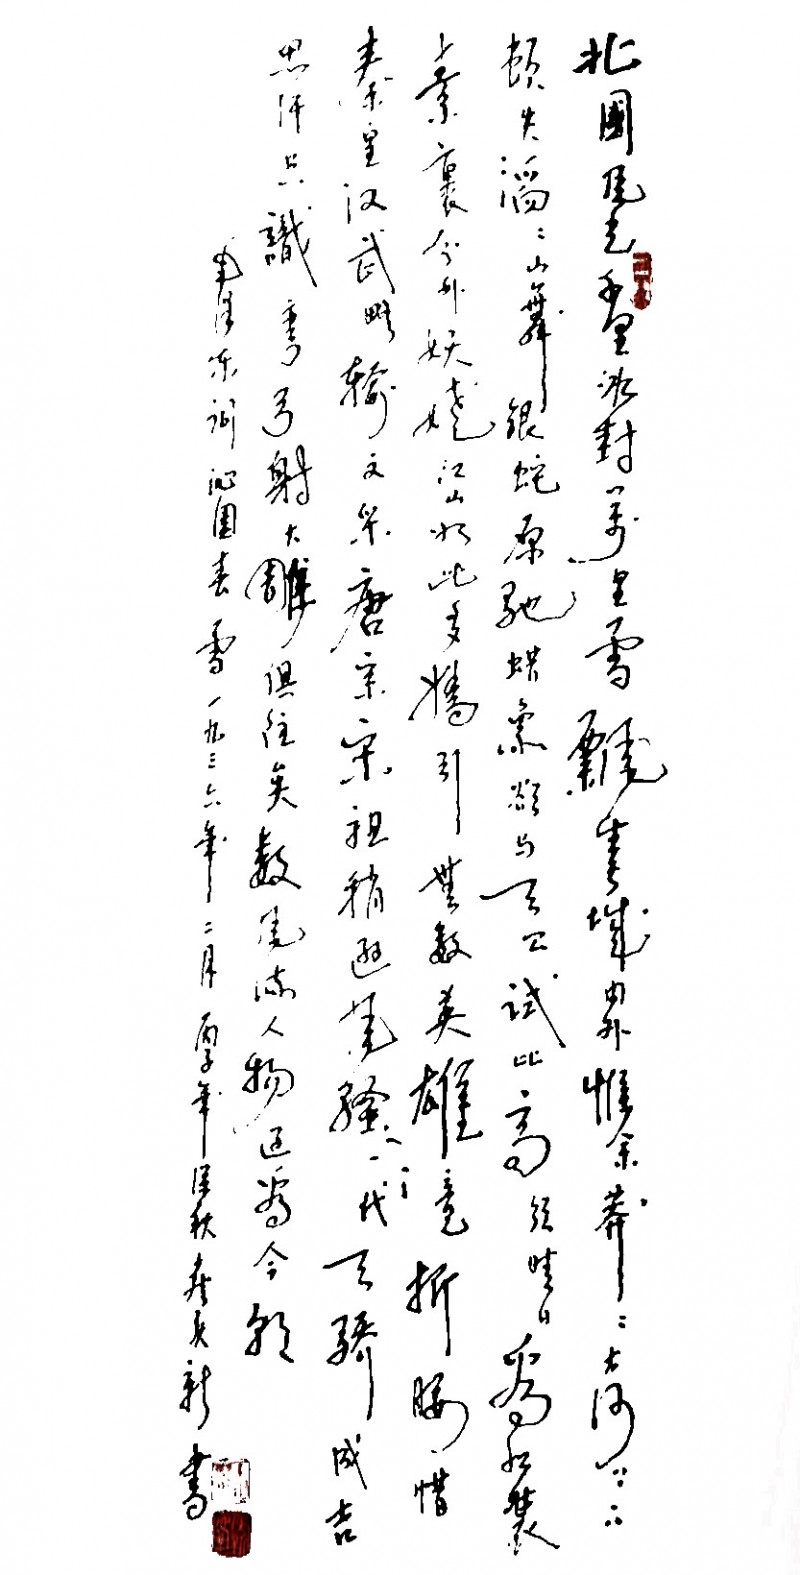 北國風光千里冰封萬里雪飄望長城内外惟余莽〻大河上下
頓失滔〻山舞銀蛇原馳蜡象欲与天公試比高須晴日看紅裝
素裹分外妖嬈江山如此多嬌引無數英雄竞折腰惜
秦皇汉武略輸文采唐宗宋祖稍遜風騷一代天驕成吉
思汗只識彎弓射大雕俱往矣數風流人物還看今朝
毛泽东词沁園春雪一九三六年二月年深秋新書